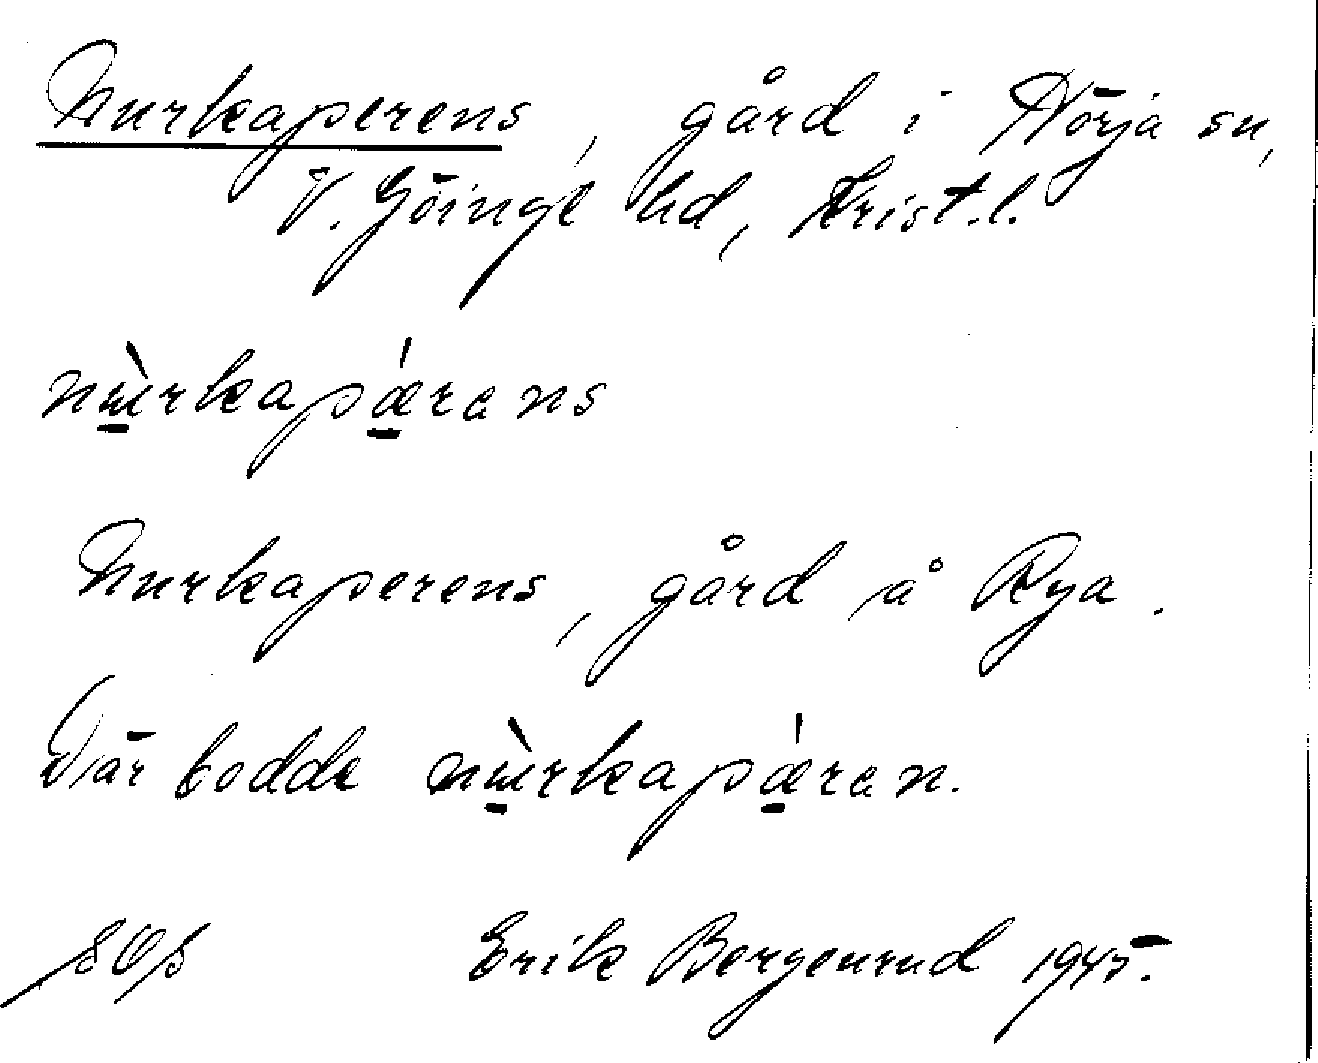 Nurkaperens, gård i Nörja sn,
V. Göinge hd, Krist. l.
nɯ̲̀rkapǽ̲rəns
Nurkaperens, gård å Rya.
Där bodde nɯ̲̀rkapǽ̲rən.
Erik Bergenrud 1945.